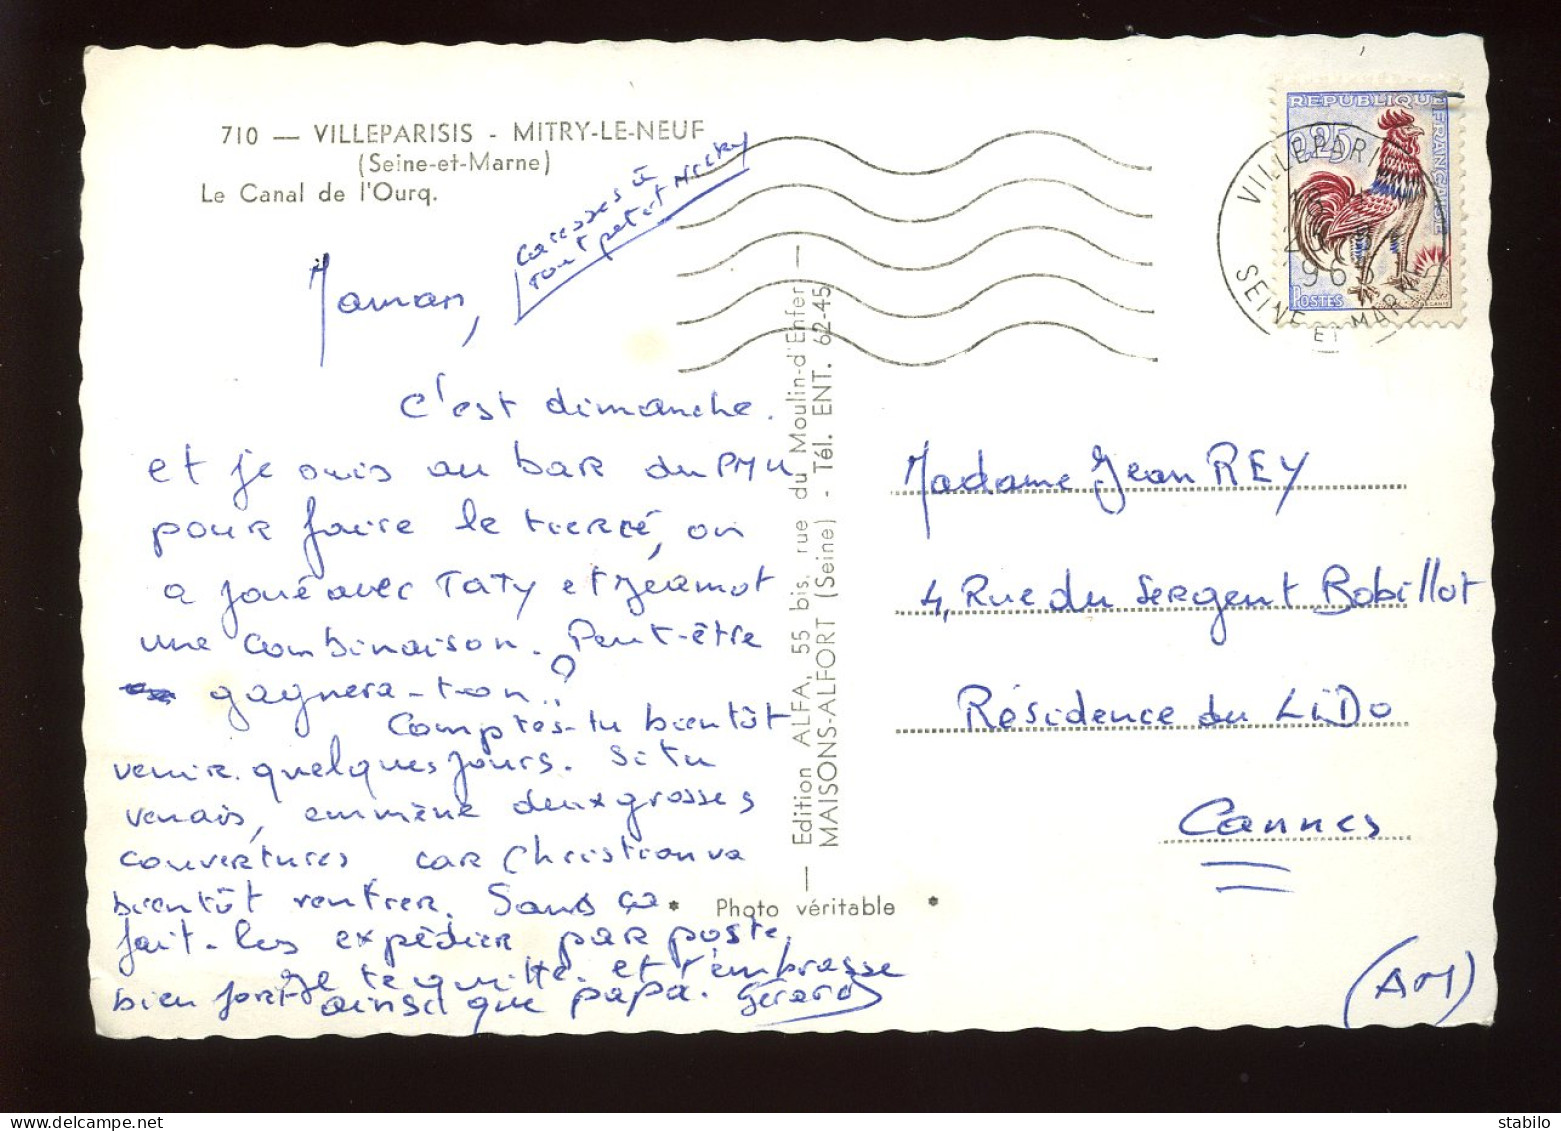 710 — VILLEPARISIS - MITRY-LE-NEUF
(Seine-et-Marne)
Le Canal de l'Ourq.
caresses à
tout petit Micky
Maman,
C'est dimanche.
et je suis au bar du PMU
pour faire le tiercé, on
a joué avec TATY et Jeannot
une combinaison. Peut-être
gagnera-t-on..?
Comptes-tu bientôt
venir quelques jours. Si tu
venais, emmène deux grosses
couvertures car Christian va
bientôt rentrer. Sans ça
fait-les expédier par poste.
Je te quitte. et t'embrasse
bien fort ainsi que papa. Gérard
— Edition ALFA, 55 bis, rue du Moulin-d'Enfer —
MAISONS-ALFORT (Seine) - Tél. ENT. 62-45
* Photo véritable *
REPUBLIQUE FRANÇAISE
0,25
POSTES
VILLEPARI
SEINE ET MARNE
196
Madame Jean REY
4, Rue du Sergent Bobillot
Résidence du LiDo
Cannes
(AM)
stabilo